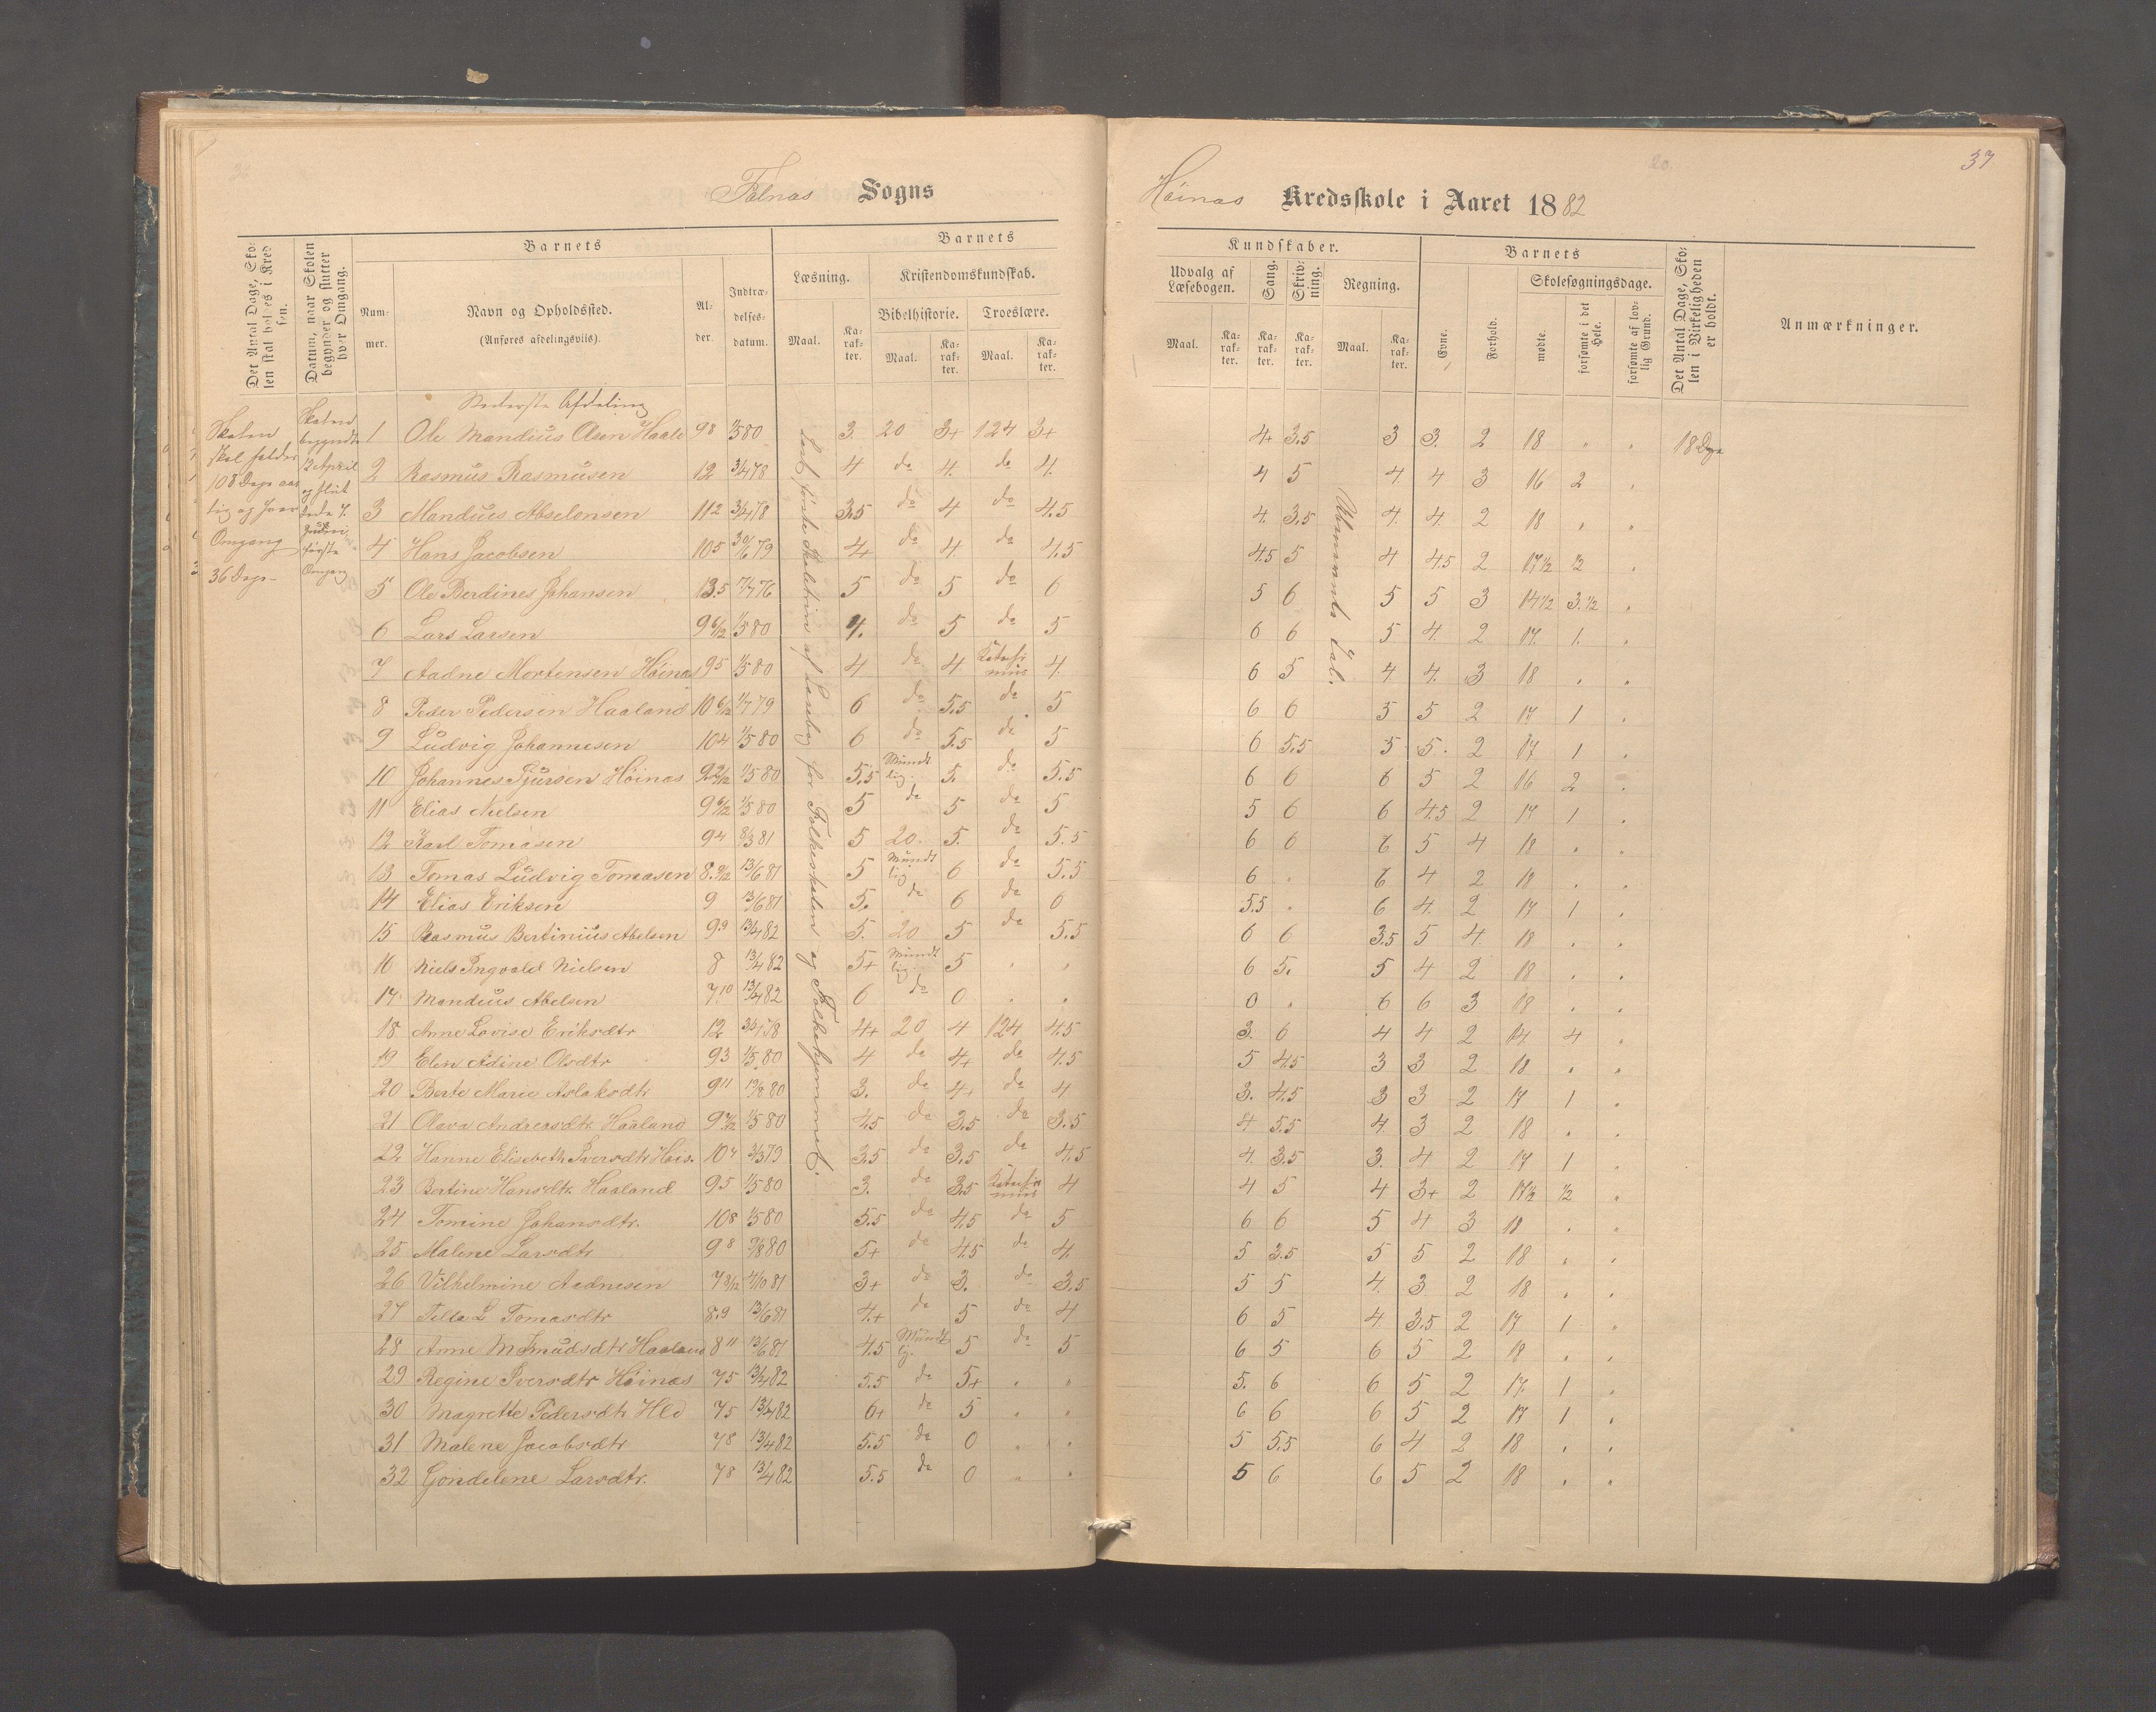 Falnæs Sogns
Høinæs Kredsskole i Aaret 1882
37
Det Antal Dage, Skolen skal holdes i Kredsen.
Datum, naar Skolen begynder og slutter hver Omgang.
Barnets
Nummer.
Navn og Opholdssted.
(Anføres afdelingsviis).
Alder.
Indtrædelsesdatum.
Barnets
Læsning.
Maal.
Karakter.
Kristendomskundskab.
Bibelhistorie.
Maal.
Karakter.
Troeslære.
Maal.
Karakter.
Kundskaber.
Udvalg af Læsebogen.
Maal.
Karakter.
Sang.
Karakter.
Skrivning.
Karakter.
Regning.
Maal.
Karakter.
Barnets
Evne.
Forhold.
Skolesøgningsdage.
mødte.
forsømte i det Hele.
forsømte af lovlig Grund.
Det Antal Dage, Skolen i Virkeligheden er holdt.
Anmærkninger.
Nederste Afdeling
Skolen
skal holdes
108 Dage aar
lig og hver
Omgang
36 Dage
Skolen
begyndte
12 April
og slut
første
Omgang
Læst første Skoletrin af Læsebog for Folkeskolen og Folkehjemmet.
Ubenævnte Tal.
1 Ole Mandius Olsen Haald 98 1/5 80 3. 20 3+ 124 3+ 4+ 3.5 3 3. 2 18 " " 18 Dage
2 Rasmus Rasmusen 12 3/4 78 4 do 4. do 4. 4 5 4 4 3 16 2 "
3 Mandius Abselonsen 11 2 3/4 78 3.5 do 4 do 4.5 4. 3.5 4. 4. 2 18 " "
4 Hans Jacobsen 10 5 30/6 79 4+ do 4. do 4.5 4.5 5 4 4.5 2 17 1/2 1/2 "
5 Ole Berdines Johansen 13.5 7/4 76 5 do 5 do 6 5 6 5 5 3 14 1/2 3.1/2 "
6 Lars Larsen 9 6/12 1/5 80 4. do 5 do 5 6 6 5 4. 2 17. 1. "
7 Aadne Mortensen Høinæs 9 5 1/5 80 4 do 4 Katekismus 4. 6 5 4 4. 3 18 " "
8 Peder Pedersen Haaland 10 6/12 1/7 79 6 do 5.5 do 5 6 6 5 5 2 17 1 "
9 Ludvig Johannesen 10 4 1/5 80 6 do 5.5 do 5 6 5.5 5 5. 2 17 1 "
10 Johannes Sjursen Høinæs 9 2/12 1/5 80 5.5 Mundtlig. 5. do 5.5 6 6 6 5 2 16 2 "
11 Elias Nielsen 9 6/12 1/5 80 5 do 5 do 5 5 6 6 4.5 2 17 1 "
12 Karl Tomasen 9 4 8/3 81 5 20. 5. do 5.5 6 6 6 5 4 18 " "
13 Tomas Ludvig Tomasen 8.9/12 13/6 81 5 Mundtlig 6 do 5.5 6 " 6 4 2 18 " "
14 Elias Eriksen 9 13/6 81 5. do 6 do 6 5.5 " 6 4. 2 17 1 "
15 Rasmus Bertinius Abelsen 9 9 13/4 82 5. 20 5 do 5.5 6 6 3.5 5 4. 18 " "
16 Niels Ingvald Nielsen 8 13/4 82 5+ Mundtlig. 5 " " 6 5. 5 4 2 18 " "
17 Mandius Abelsen 7 10 13/4 82 6 do 0 " " 0 " 6 6 3 18 " "
18 Anne Lovise Eriksdtr 12 3/4 78 4+ 20 4 124 4.5 3. 6 4 4 2 14 4 "
19 Elen Adine Olsdtr 9 3 1/5 80 4 do 4+ do 4.5 5 4.5 3 3 2 18 " "
20 Berte Marie Aslaksdtr 9 11 19/8 80 3. do 4+ do 4 3. 4.5 3 3 2 17 1 "
21 Olava Andreasdtr. Haaland 9 2/12 1/5 80 4.5 do 3.5 do 3.5 4 5.5 4. 3 2 18 " "
22 Hanne Elisebeth Iversdtr Høis. 10 4 3/3 79 3.5 do 3.5 do 4.5 4. 3.5 3. 4 2 17 1 "
23 Bertine Hansdtr. Haaland 9 5 1/5 80 3. do 3.5 Katekismus 4 4 5 4 3+ 2 17 1/2 1/2 "
24 Tomine Johansdtr. 10 8 1/5 80 5.5 do 4.5 do 5 6 6 5 4 3 18 " "
25 Malene Larsdtr 9 8 9/8 80 5+ do 4.5 do 4. 5 3.5 5 5 2 18 " "
26 Vilhelmine Aadnesen 7 3/12 4/10 81 3+ do 3. do 3.5 5 5 4. 3 2 18 " "
27 Tilla L Tomasdtr 8.9 13/6 81 4.+ do 5 do 4 6 5 4 3.5 2 17 1 "
28 Anne M Knudsdtr Haaland 8 11 13/6 81 4.5 Mundtlig. 5 do 5 6 5 6 5 2 18 " "
29 Regine Iversdtr Høinæs 7 5 13/4 82 5.5 do 5+ " " 5. 6 6 5 2 17. 1 "
30 Magrette Pedersdtr Hld 7 5 13/4 82 6+ do 5 " " 6 6 6 5 2 17 1 "
31 Malene Jacobsdtr 7 8 13/4 82 5.5 do 0 " " 5 5.5 6 4 2 18 " "
32 Gondelene Larsdtr. 7 8 13/4 82 5.5 do 0 " " 5 6 6 5 2 18 " "